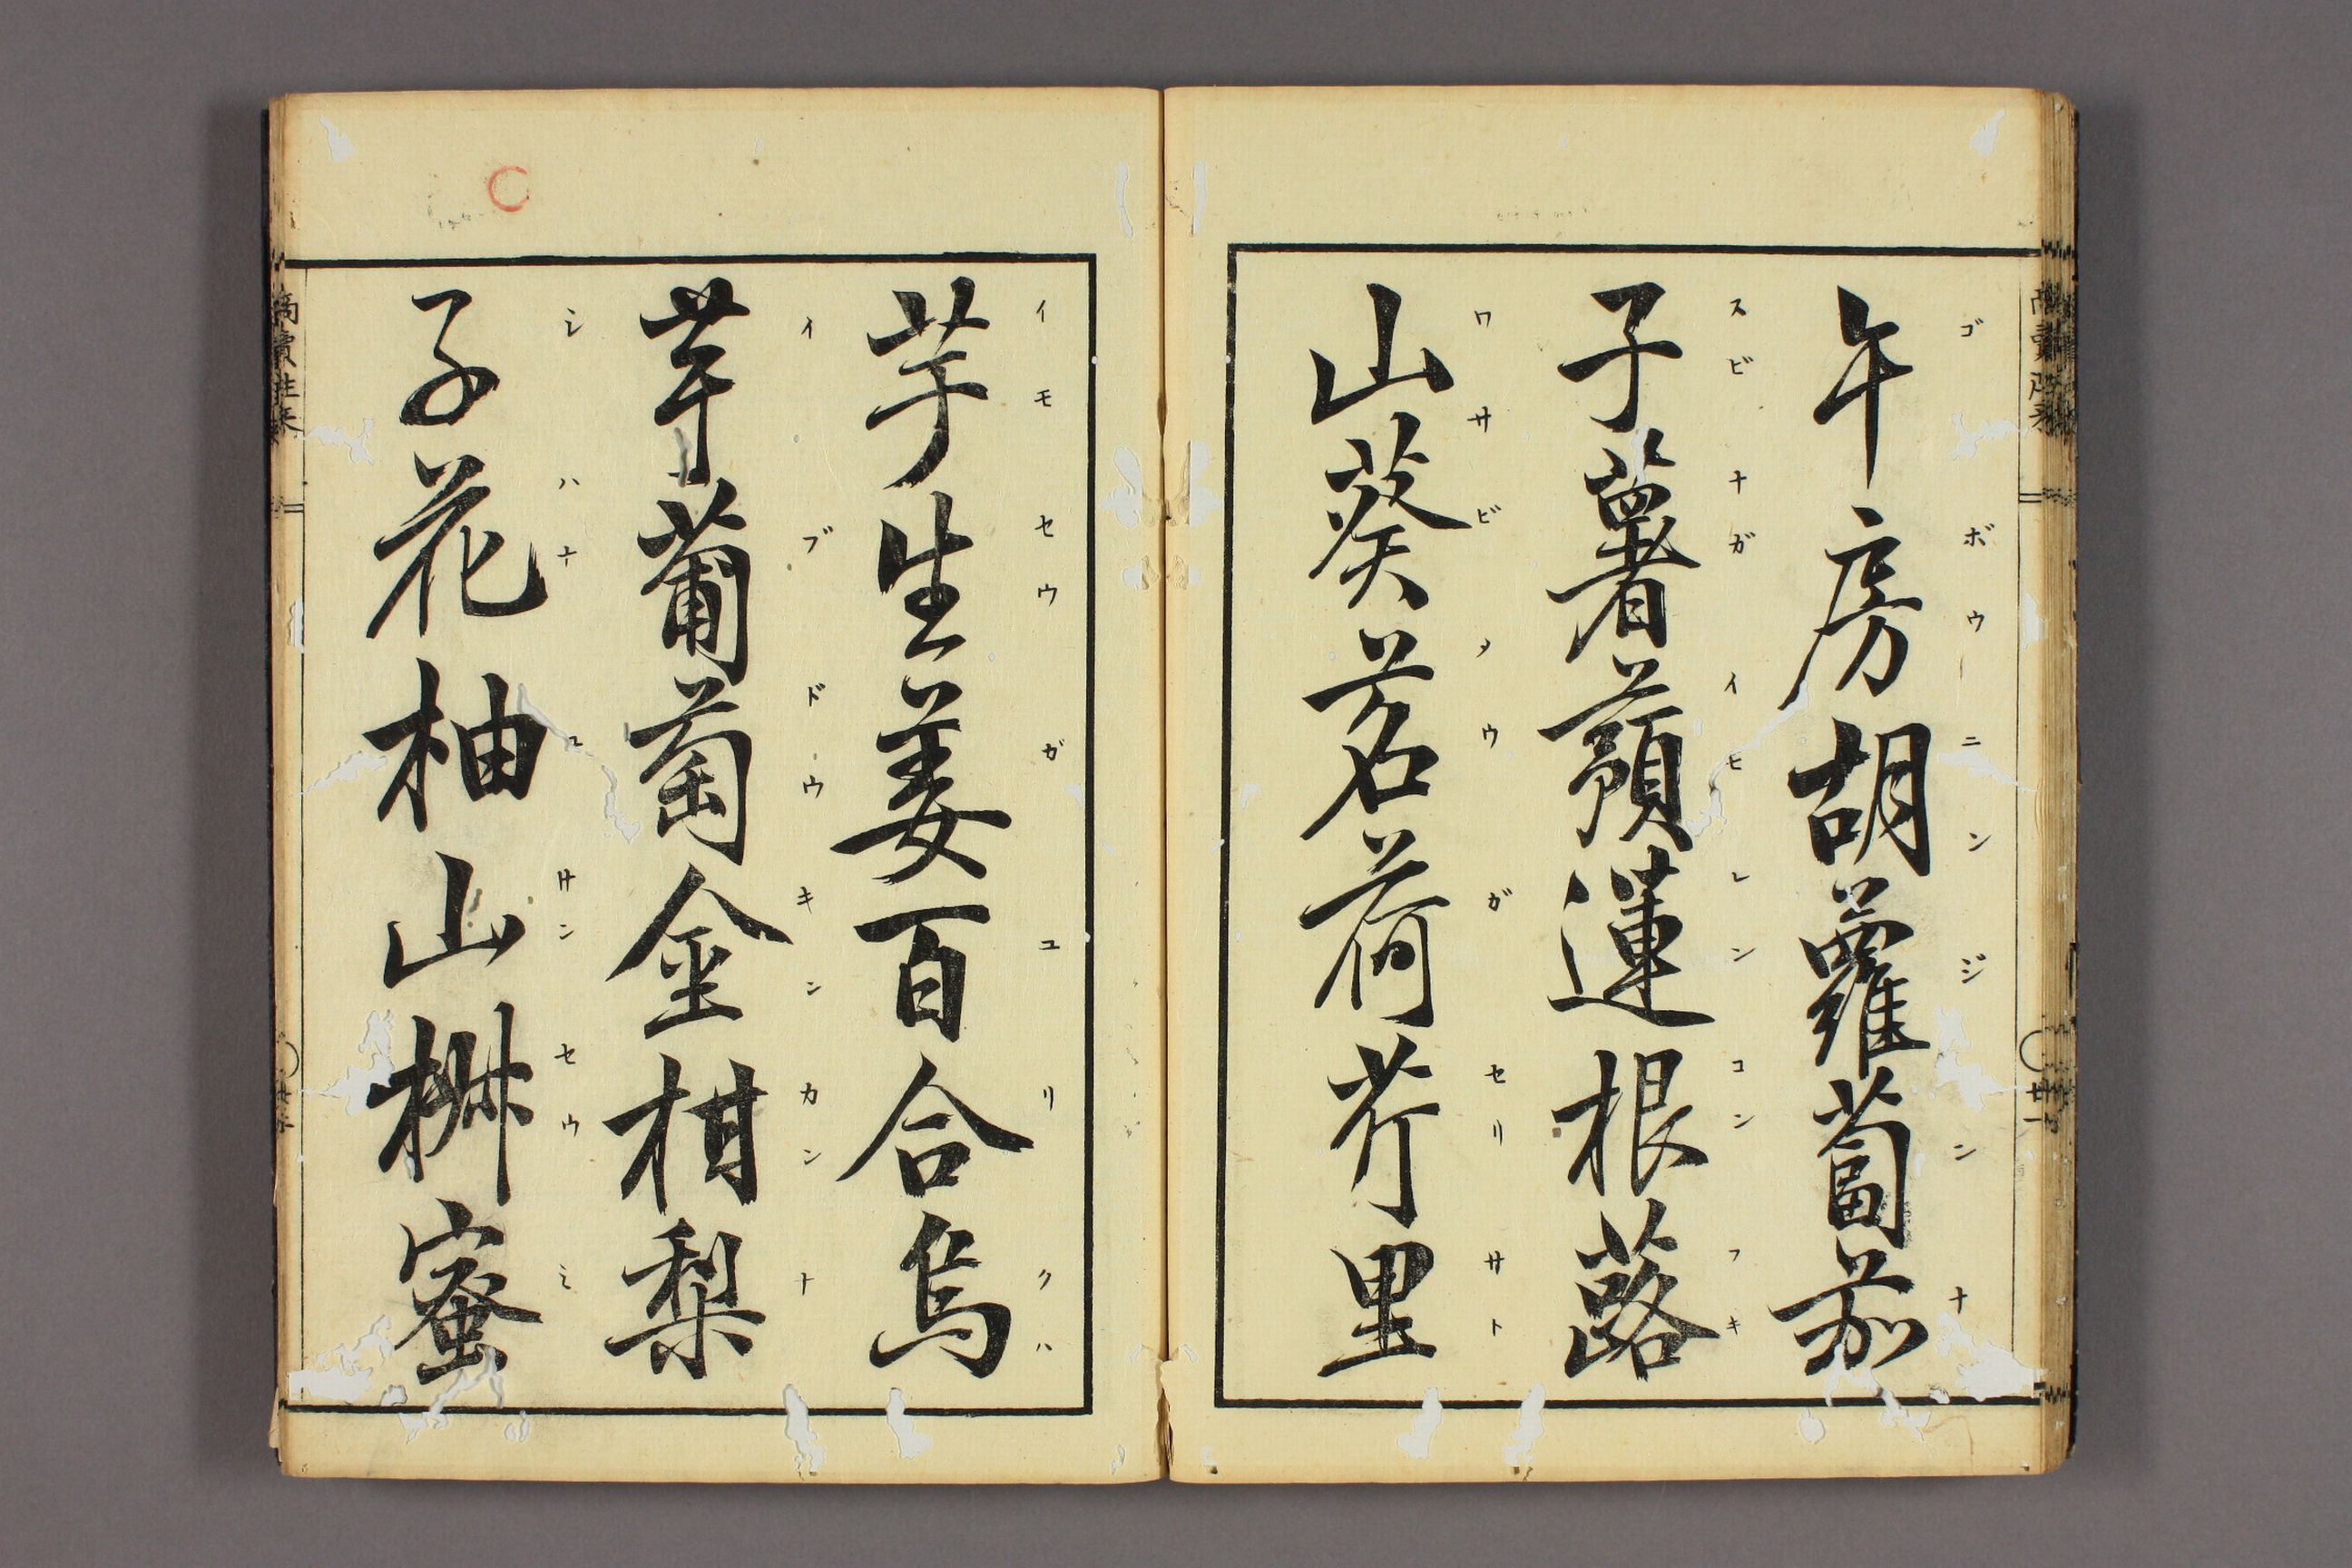 ゴボウニンジンナ
牛房胡蘿蔔茄
スビナガイモレンコンフキ
子薯蕷蓮根蕗
ワサビメウガセリサト
山葵茗荷芹里
イモセウガユリクハ
芋生姜百合烏
イブドウキンカンナ
芋葡萄金柑梨
シハナユサンセウミ
子花柚山椒蜜
商賣往来